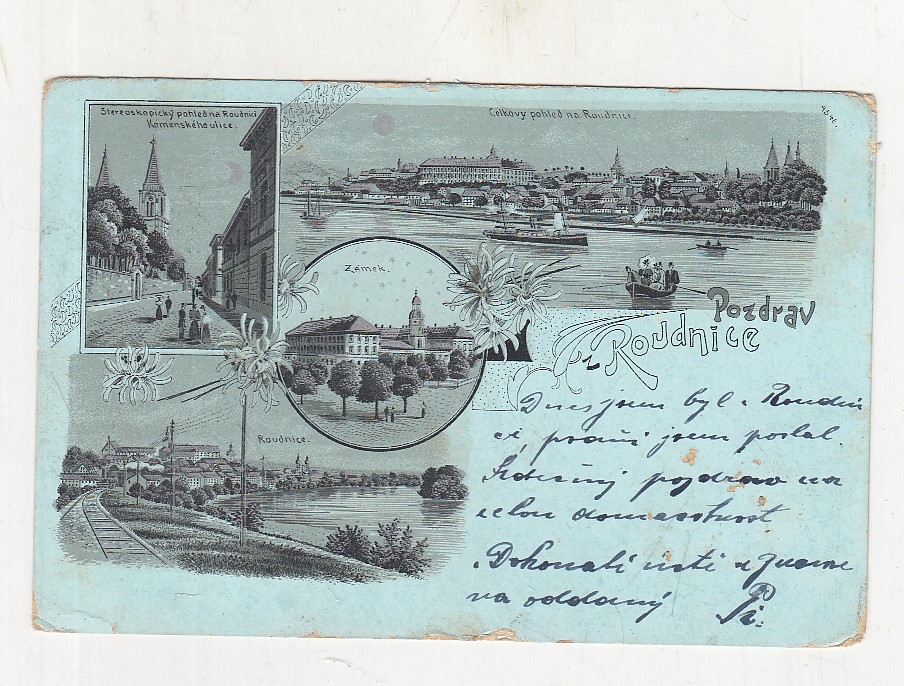 Stereoskopický pohled na Roudnici
Komenského ulice.
Celkový pohled na Roudnici.
Zámek.
Pozdrav
z Roudnice
Roudnice.
Dnes jsem byl v Roudni
ci, jsem poslal.
Srdečný pozdrav na
celou domacnost
Dokonalí
oddaný Pi.